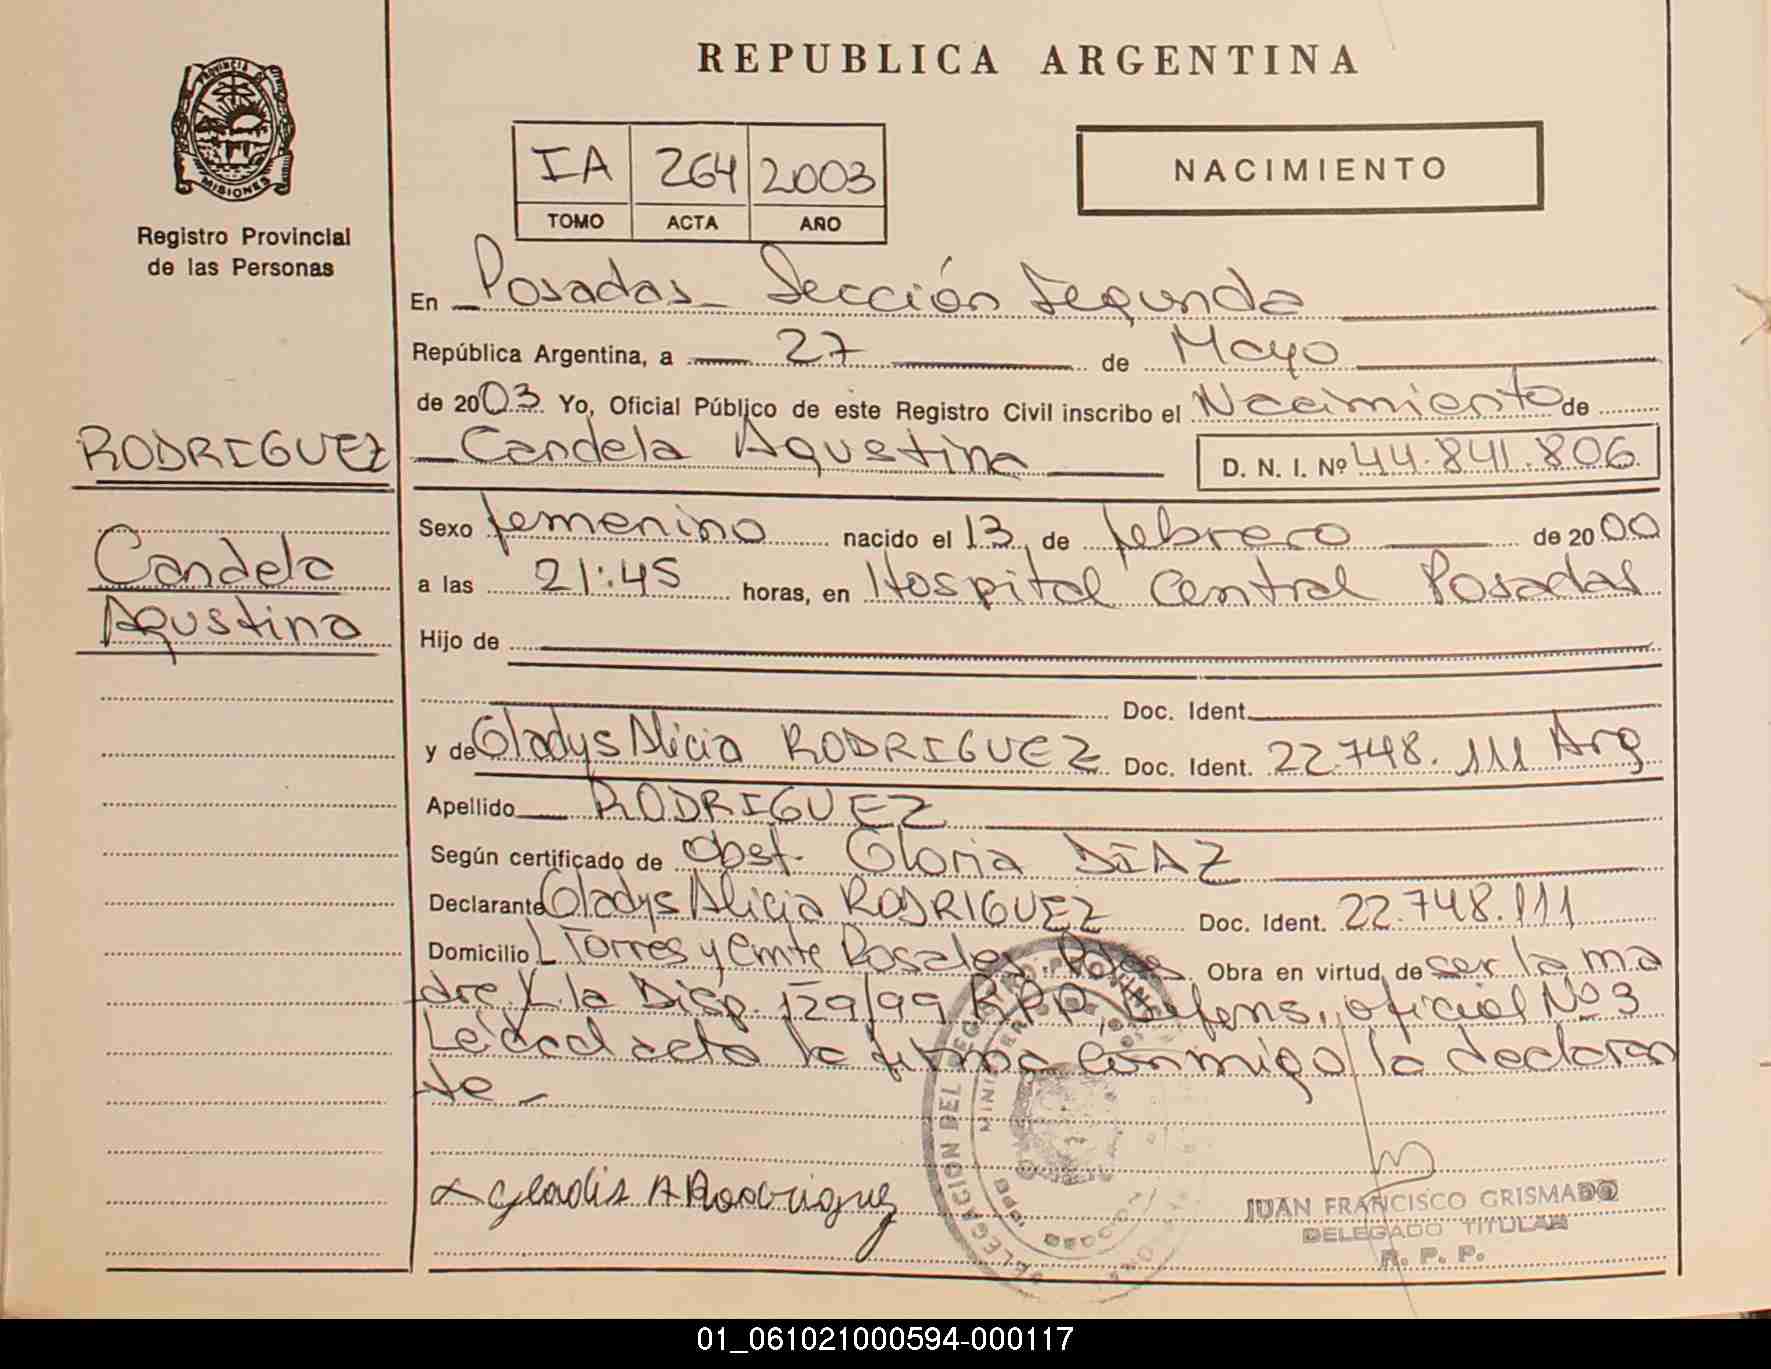 REPUBLICA ARGENTINA
PROVINCIA DE
MISIONES
Registro Provincial
de las Personas
IA 264 2003
TOMO ACTA AÑO
NACIMIENTO
En Posadas Sección Segunda
República Argentina, a 27 de Mayo
de 2003 Yo, Oficial Público de este Registro Civil inscribo el Nacimiento de
RODRIGUEZ
Candela Agustina D. N. I. Nº 44.841.806
Sexo femenino nacido el 13 de febrero de 2000
Candela
a las 21:45 horas, en Hospital Central Posadas
Agustina
Hijo de
Doc. Ident.
y de Gladys Alicia RODRIGUEZ Doc. Ident. 22.748.111 Arg
Apellido RODRIGUEZ
Según certificado de Obst. Gloria DIAZ
Declarante Gladys Alicia RODRIGUEZ Doc. Ident. 22.748.111
Domicilio L Torres y Cmte Rosales Pdas Obra en virtud de ser la ma
dre y la Disp. 129/99 RPP, Defens. oficial Nº 3
Leída el acta la firma conmigo la declaran
te -
DELEGACION DEL REGISTRO PROVINCIAL
Gladis A Rodriguez
JUAN FRANCISCO GRISMADO
DELEGADO TITULAR
R. P. P.
01_061021000594-000117